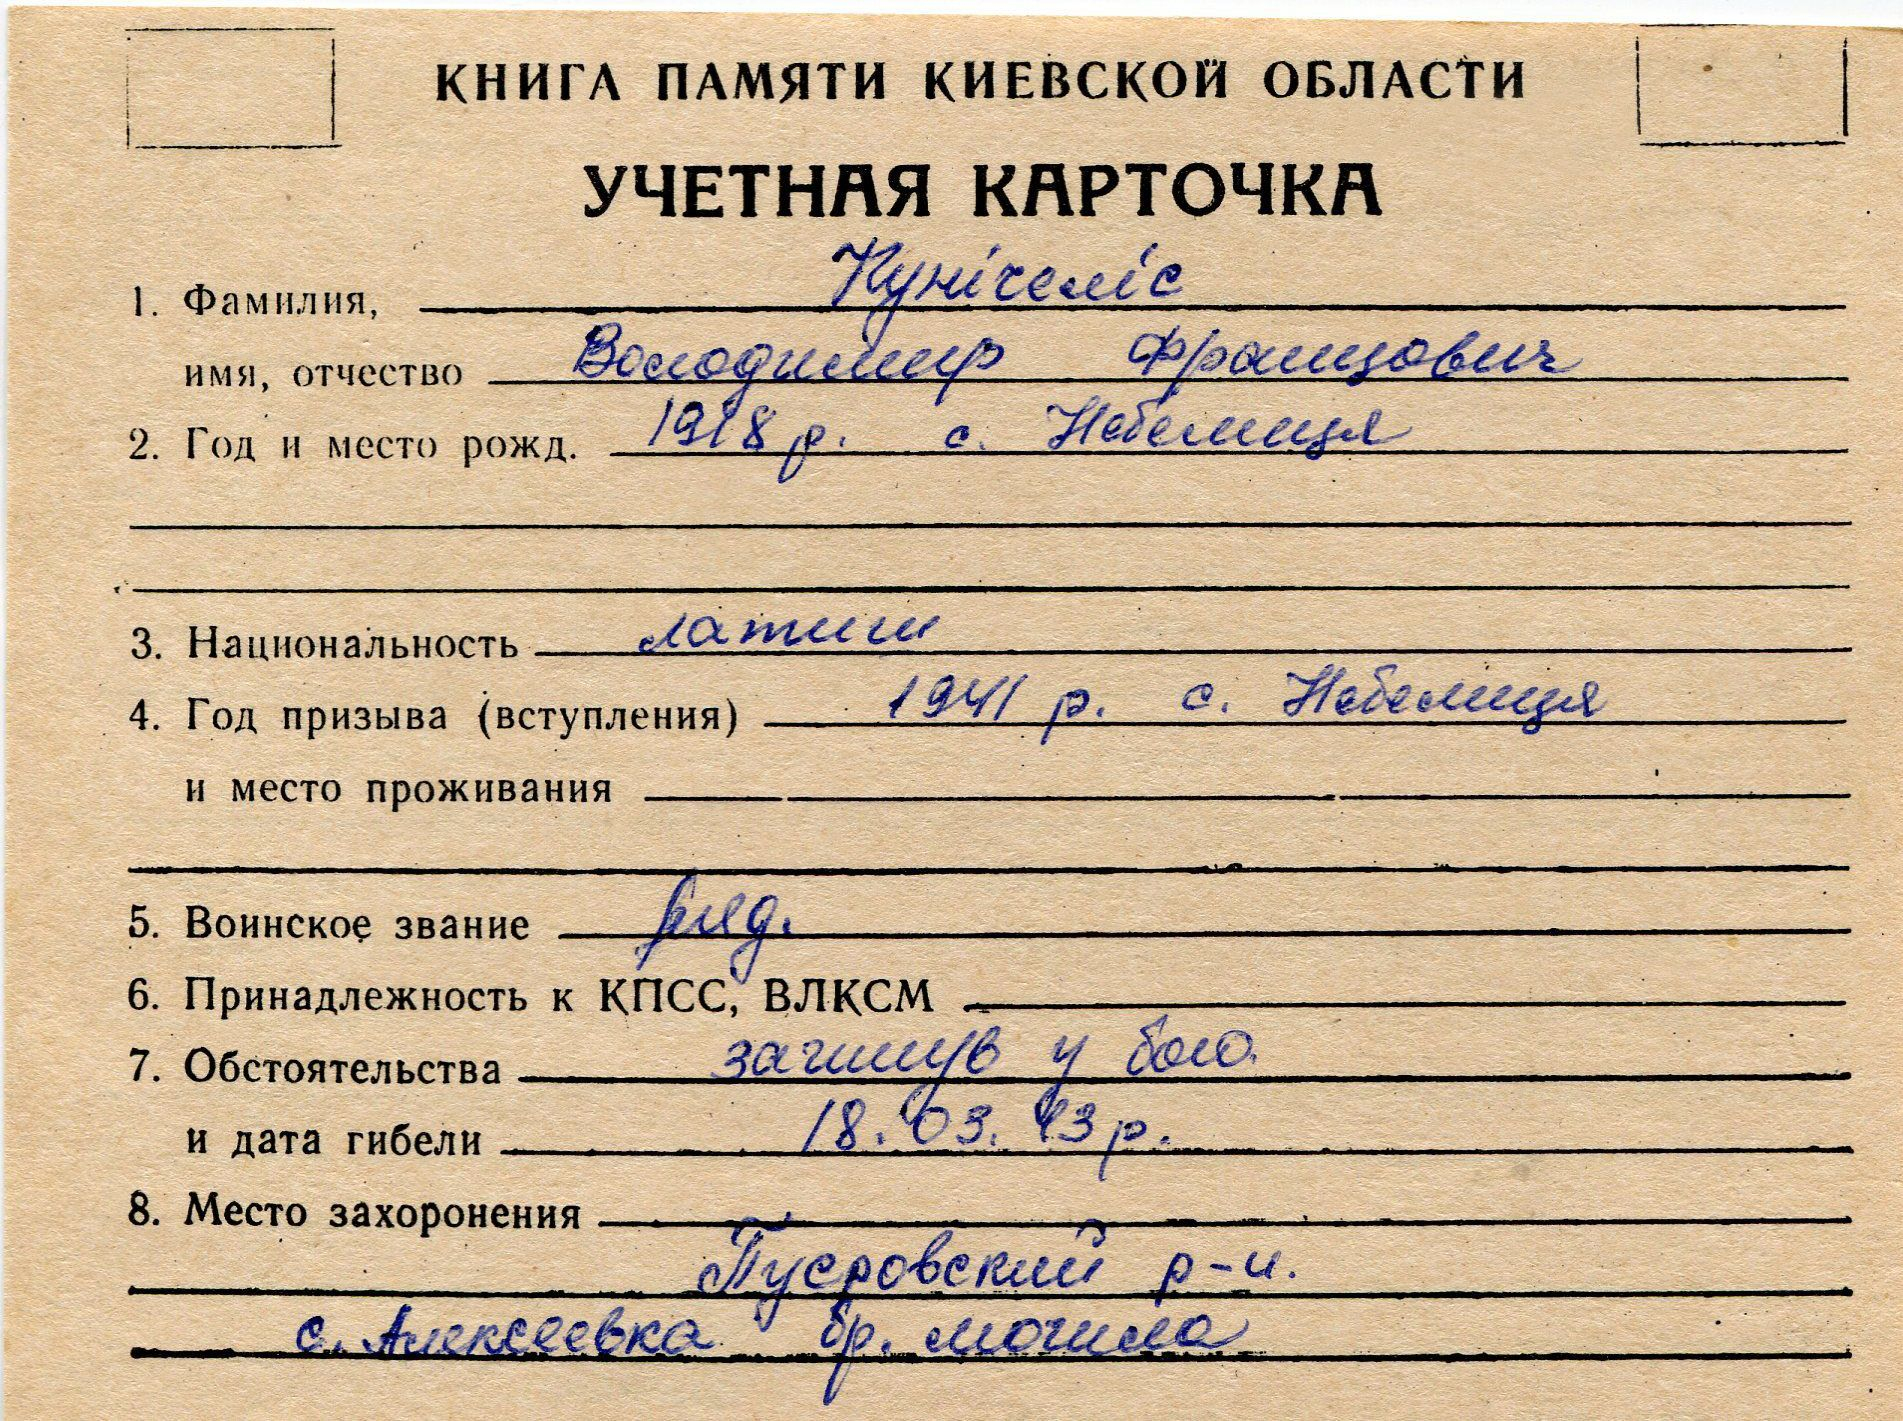 КНИГА ПАМЯТИ КИЕВСКОЙ ОБЛАСТИ
УЧЕТНАЯ КАРТОЧКА
1. Фамилия, Кунічеліс
имя, отчество Володимир Францович
2. Год и место рожд. 1918 р. с. Небелиця
3. Национальность латиш
4. Год призыва (вступления) 1941 р. с. Небелиця
и место проживания
5. Воинское звание ряд.
6. Принадлежность к КПСС, ВЛКСМ
7. Обстоятельства загинув у бою
и дата гибели 18.03.43 р.
8. Место захоронения
р-н.
с. Алексеевка бр. могила